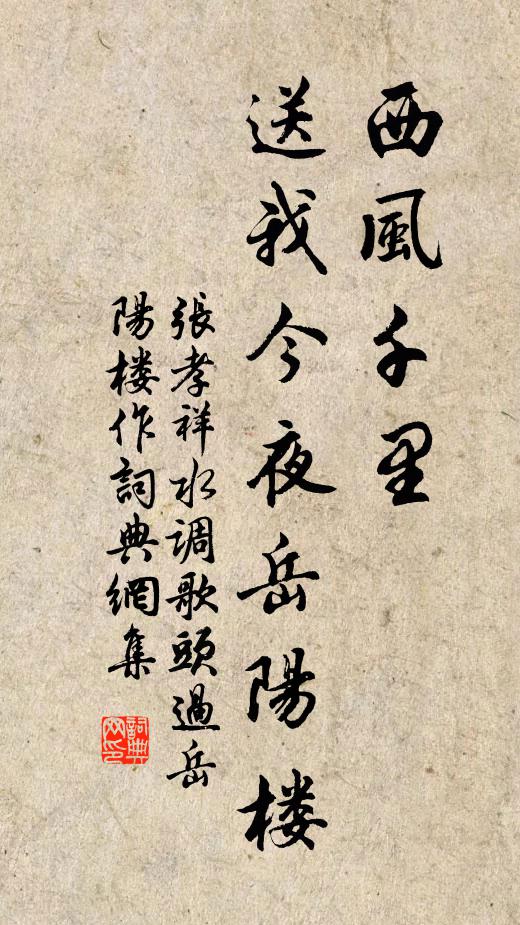 西風千里
送我今夜岳陽楼
張孝祥水调歌頭過岳
陽楼作詞典網集
詞典网印